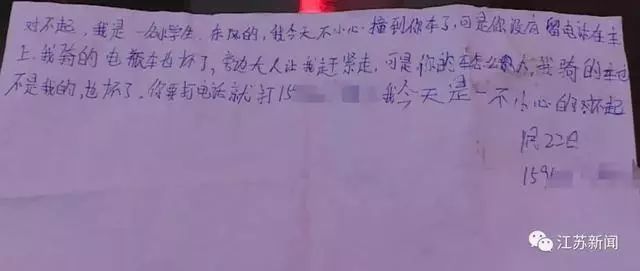 对不起，我是一名小学生，东风的，我今天不小心撞到你车了，可是你没有留电话在车
上，我骑的电瓶车也坏了，旁边大人让我赶紧走，可是你的车怎么办，我骑的车也
不是我的，也坏了，你要打电话就打15 我今天是一不小心的对不起
22日
159
江苏新闻